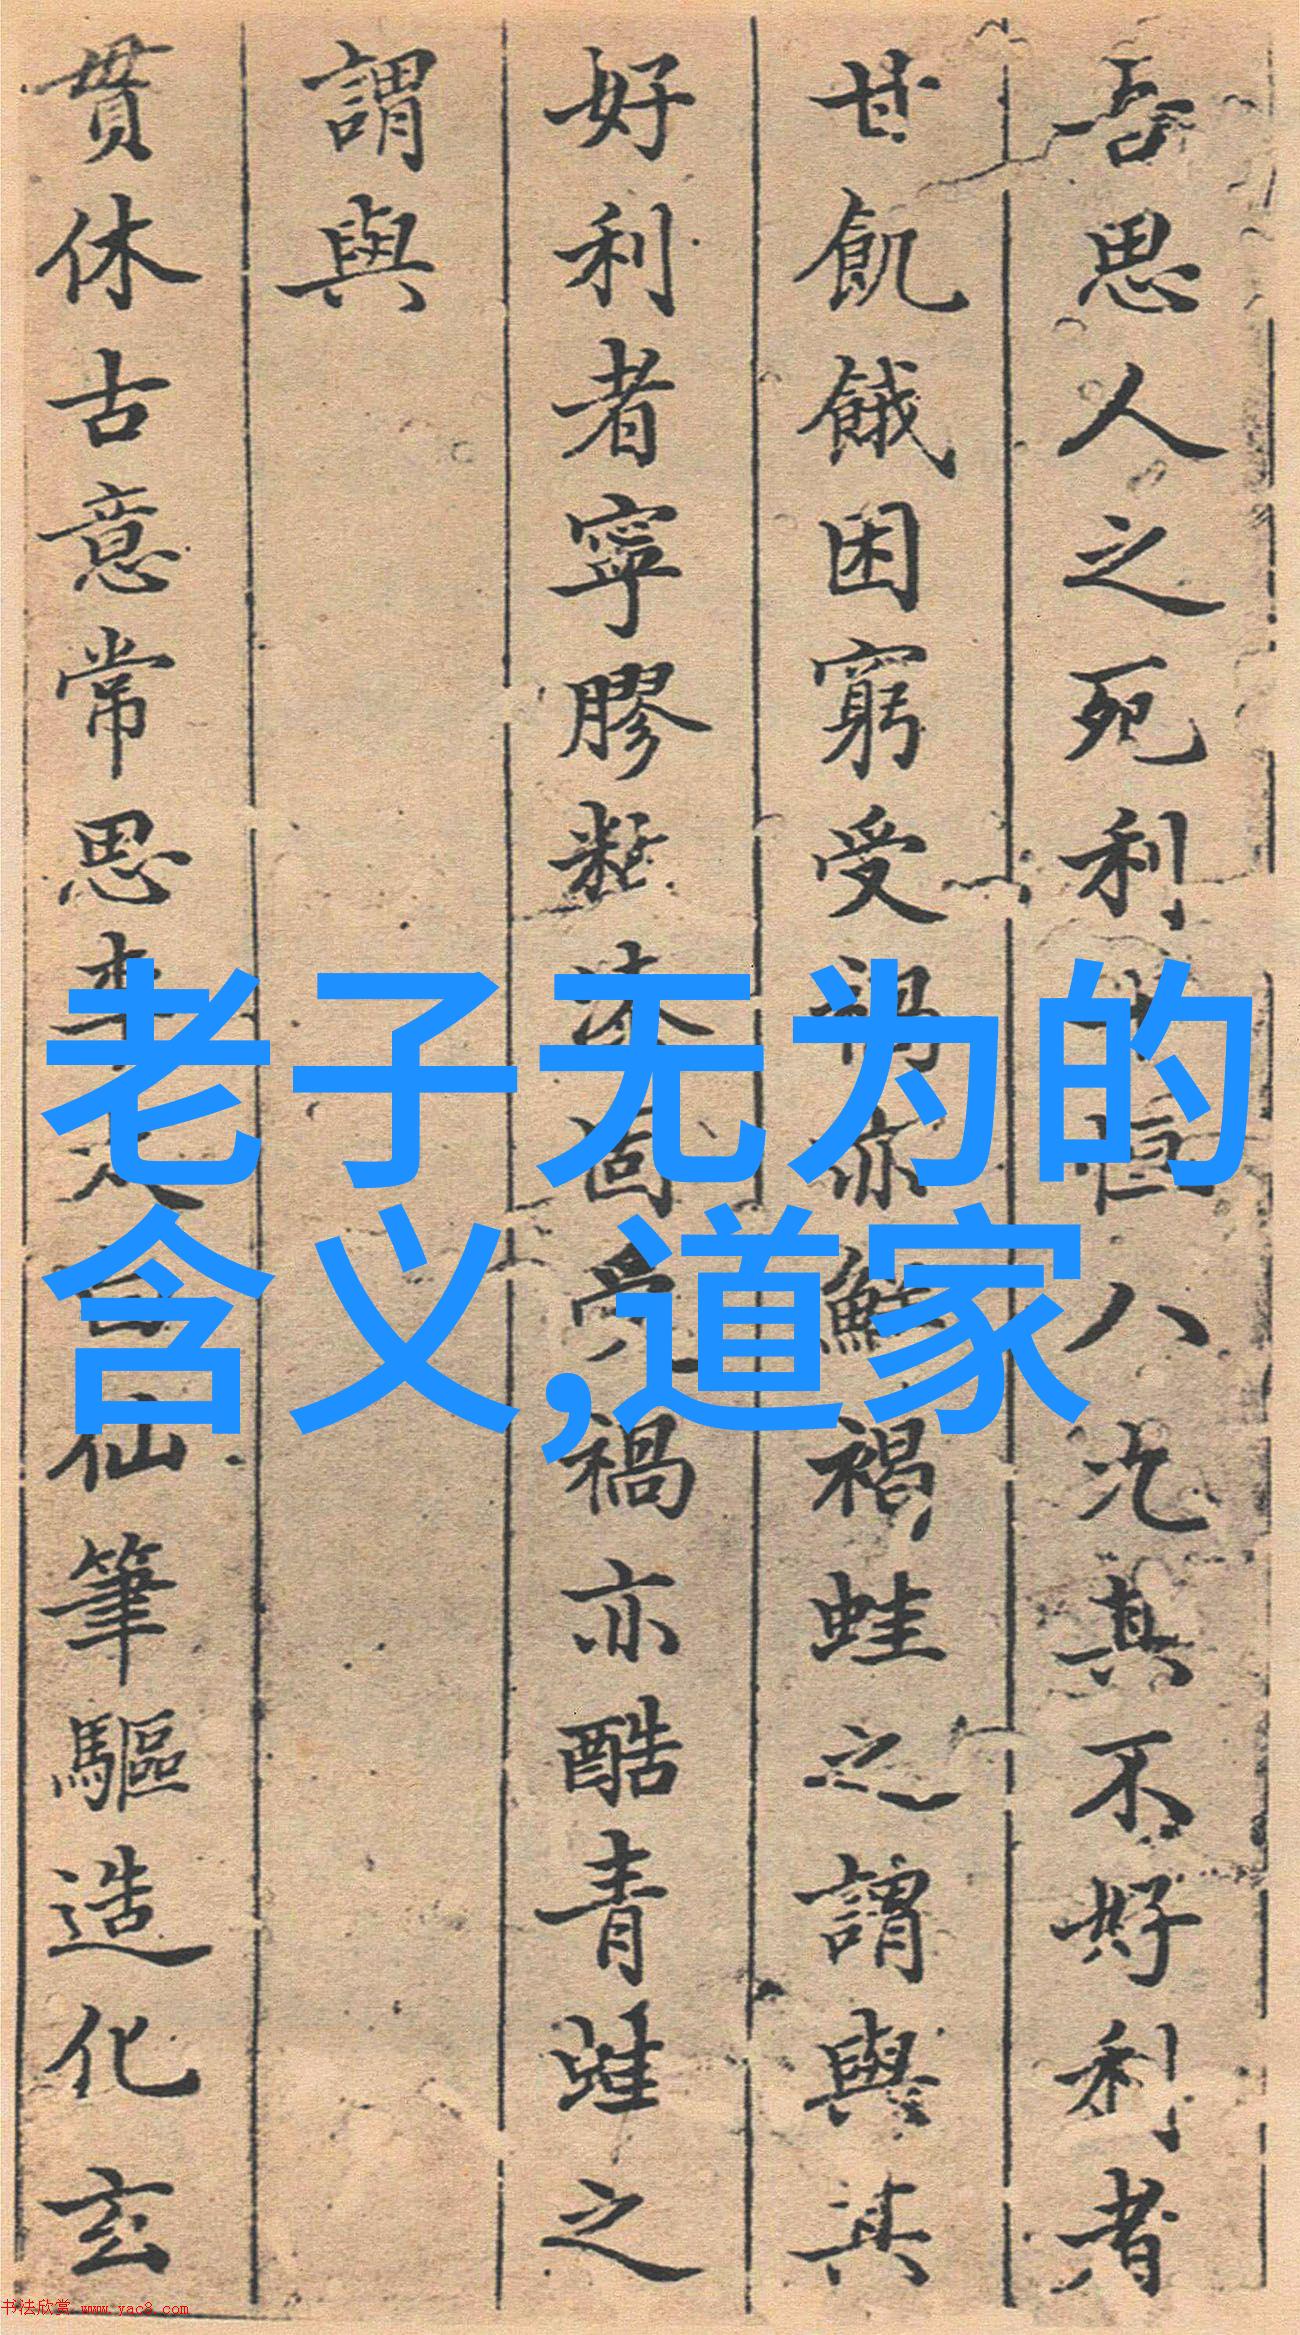 吾思人之死利十恒八九其不好利者
甘飢餓困窮受禍亦鮮褐蛙之謂與其
好利者寧膠黏漆固受禍亦酷青蛙之
謂與
貫休古意常思李太白仙筆驅造化玄
老子无为的
含义,道家
书法欣赏 www.yac8.com